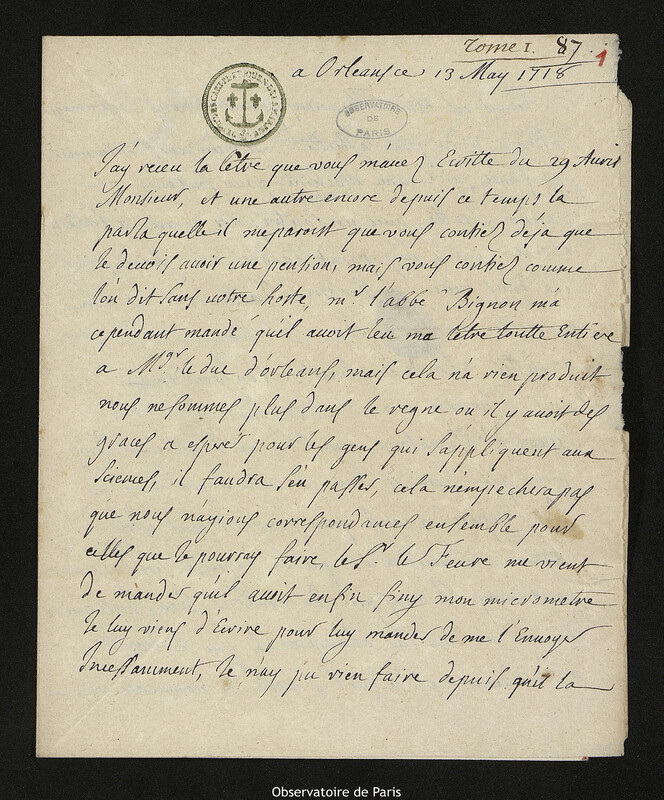 Tome I. 87. 1
a Orleans ce 13 May 1718
OBSERVATOIRE
DE
PARIS
J'ay receu la letre que vous m'avez Ecritte du 29 Avril
Monsieur, et une autre encore depuis ce temps la
par la quelle il me paroist que vous contiez déja que
Je devois avoir une pention, mais vous contiez comme
l'on dit sans votre hoste, mr. l'abbé Bignon m'a
cependant mandé qu'il avoit leu ma letre toutte Entiere
a Mgr. le duc d'orleans, mais cela n'a rien produit
nous ne sommes plus dans le regne ou il y avoit des
graces a esperer pour les gens qui s'appliquent aux
sciences, il faudra s'en passer, cela n'empechera pas
que nous n'ayions correspondances ensemble pour
celles que Je pourray faire, le Sr. le Feuvre me vient
de mander qu'il avoit enfin finy mon micrometre
Je luy viens d'Ecrire pour luy mander de me l'Envoyer
Incessamment, Je n'ay pu rien faire depuis qu'il la
Observatoire de Paris